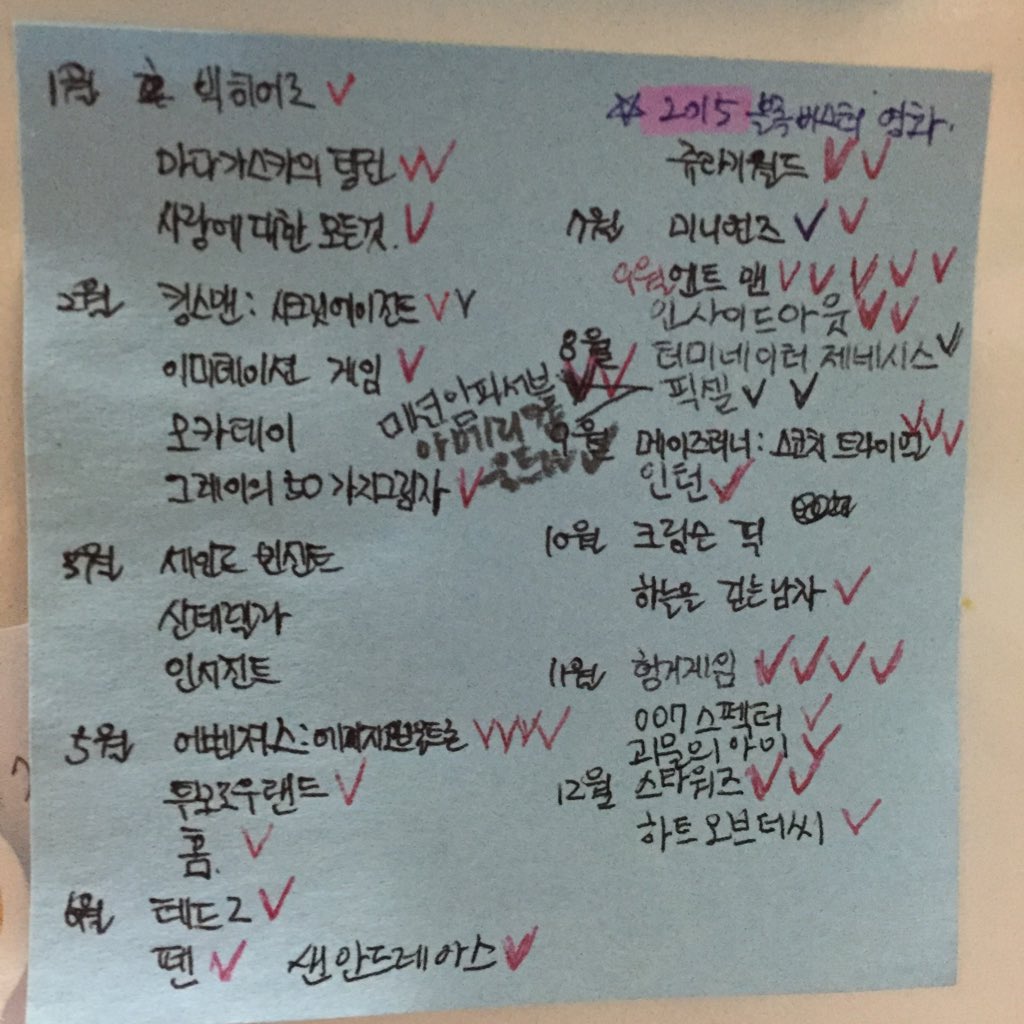 1월 빅히어로
마다가스카의 펭귄
사랑에 대한 모든것.
2월 킹스맨: 시크릿에이전트
이미테이션 게임
모카데이
그레이의 50가지그림자
3월 세인트 빈센트
신데렐라
인서전트
5월 어벤져스: 에이지오브울트론
투모로우랜드
홈.
6월 테드2
팬 샌안드레아스
☆ 2015 블록버스터 영화.
쥬라기월드
7월 미니언즈
9월 엔트 맨
인사이드아웃
8월 터미네이터 제네시스
미션임파서블
픽셀
9월 메이즈러너: 스코치 트라이얼
인턴
10월 크림슨 픽
하늘을 걷는남자
11월 헝거게임
007 스펙터
괴물의 아이
12월 스타워즈
하트오브더씨